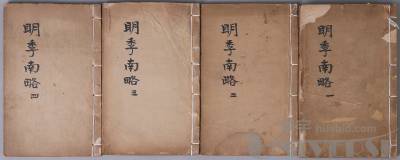 明季南略 四
明季南略 三
明季南略 二
明季南略 一